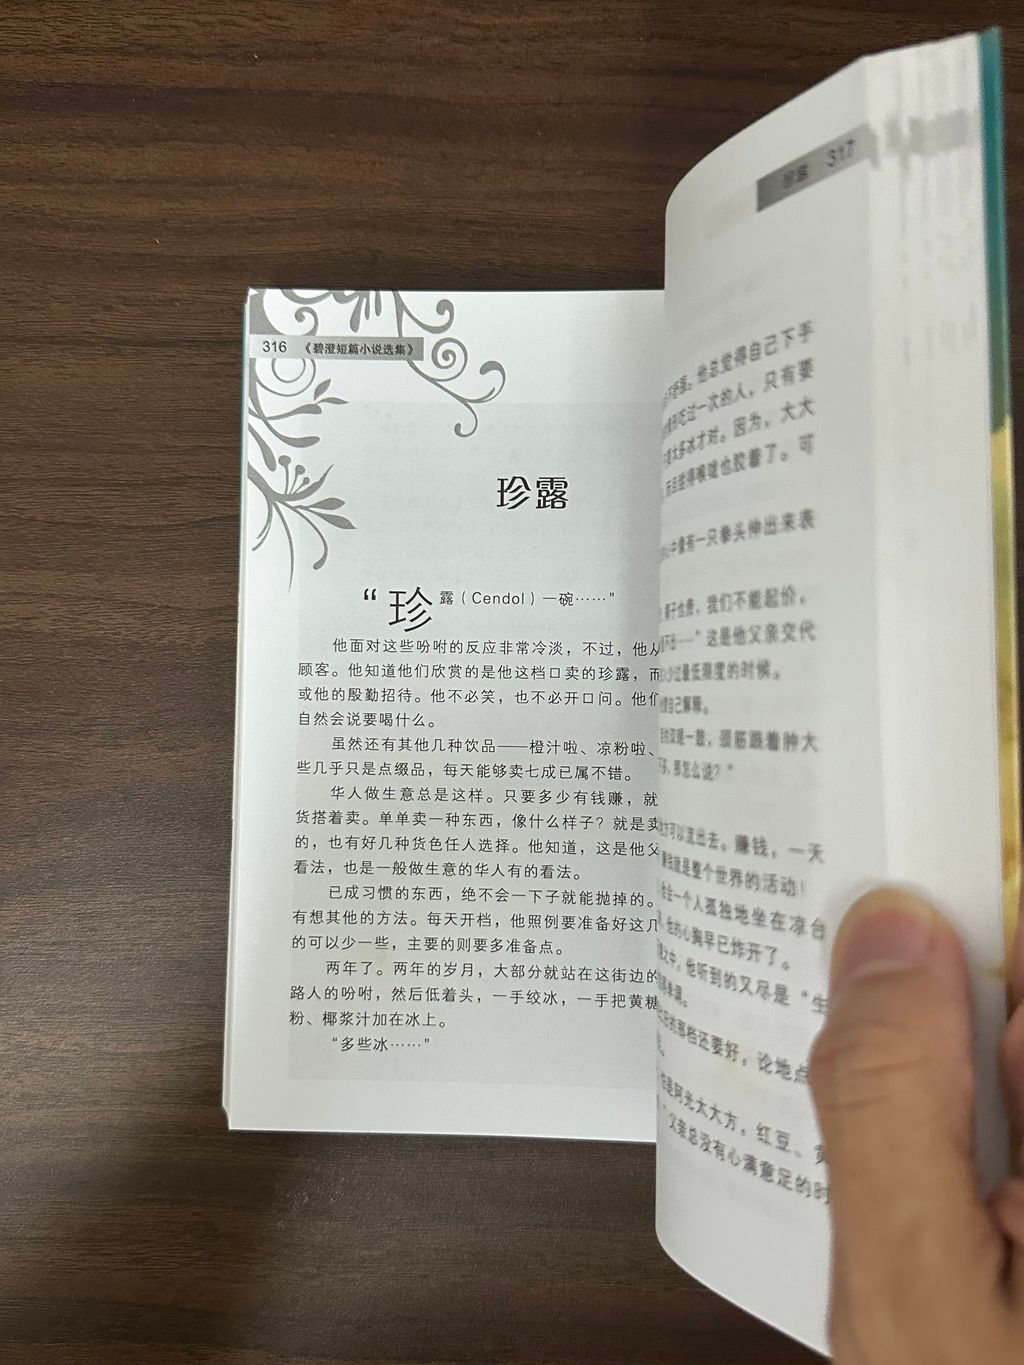 316 《碧澄短篇小说选集》
珍露
“珍露（Cendol）一碗……”
他面对这些吩咐的反应非常冷淡，不过，他从
顾客。他知道他们欣赏的是他这档口卖的珍露，而
或他的殷勤招待。他不必笑，也不必开口问。他们
自然会说要喝什么。
虽然还有其他几种饮品——橙汁啦、凉粉啦、
些几乎只是点缀品，每天能够卖七成已属不错。
华人做生意总是这样。只要多少有钱赚，就
货搭着卖。单单卖一种东西，像什么样子？就是卖
的，也有好几种货色任人选择。他知道，这是他父
看法，也是一般做生意的华人有的看法。
已成习惯的东西，绝不会一下子就能抛掉的。
有想其他的方法。每天开档，他照例要准备好这几
的可以少一些，主要的则要多准备点。
两年了。两年的岁月，大部分就站在这街边的
路人的吩咐，然后低着头，一手绞冰，一手把黄糖
粉、椰浆汁加在冰上。
“多些冰……”
珍露 317
。他总觉得自己下手
吃过一次的人，只有要
太多冰才对。因为，大大
而且觉得喉咙也胶着了。可
心中像有一只拳头伸出来表
也贵，我们不能起价，
不出……”这是他父亲交代
少过最低限度的时候。
自己解释。
一鼓，颈筋跟着肿大
，那怎么说？”
方可以流出去。赚钱，一天
就是整个世界的活动！
会一个人孤独地坐在凉台
，他的心胸早已炸开了。
之中，他听到的又尽是“生
的那档还要好，论地点
阿光太大方，红豆、黄
”父亲总没有心满意足的时